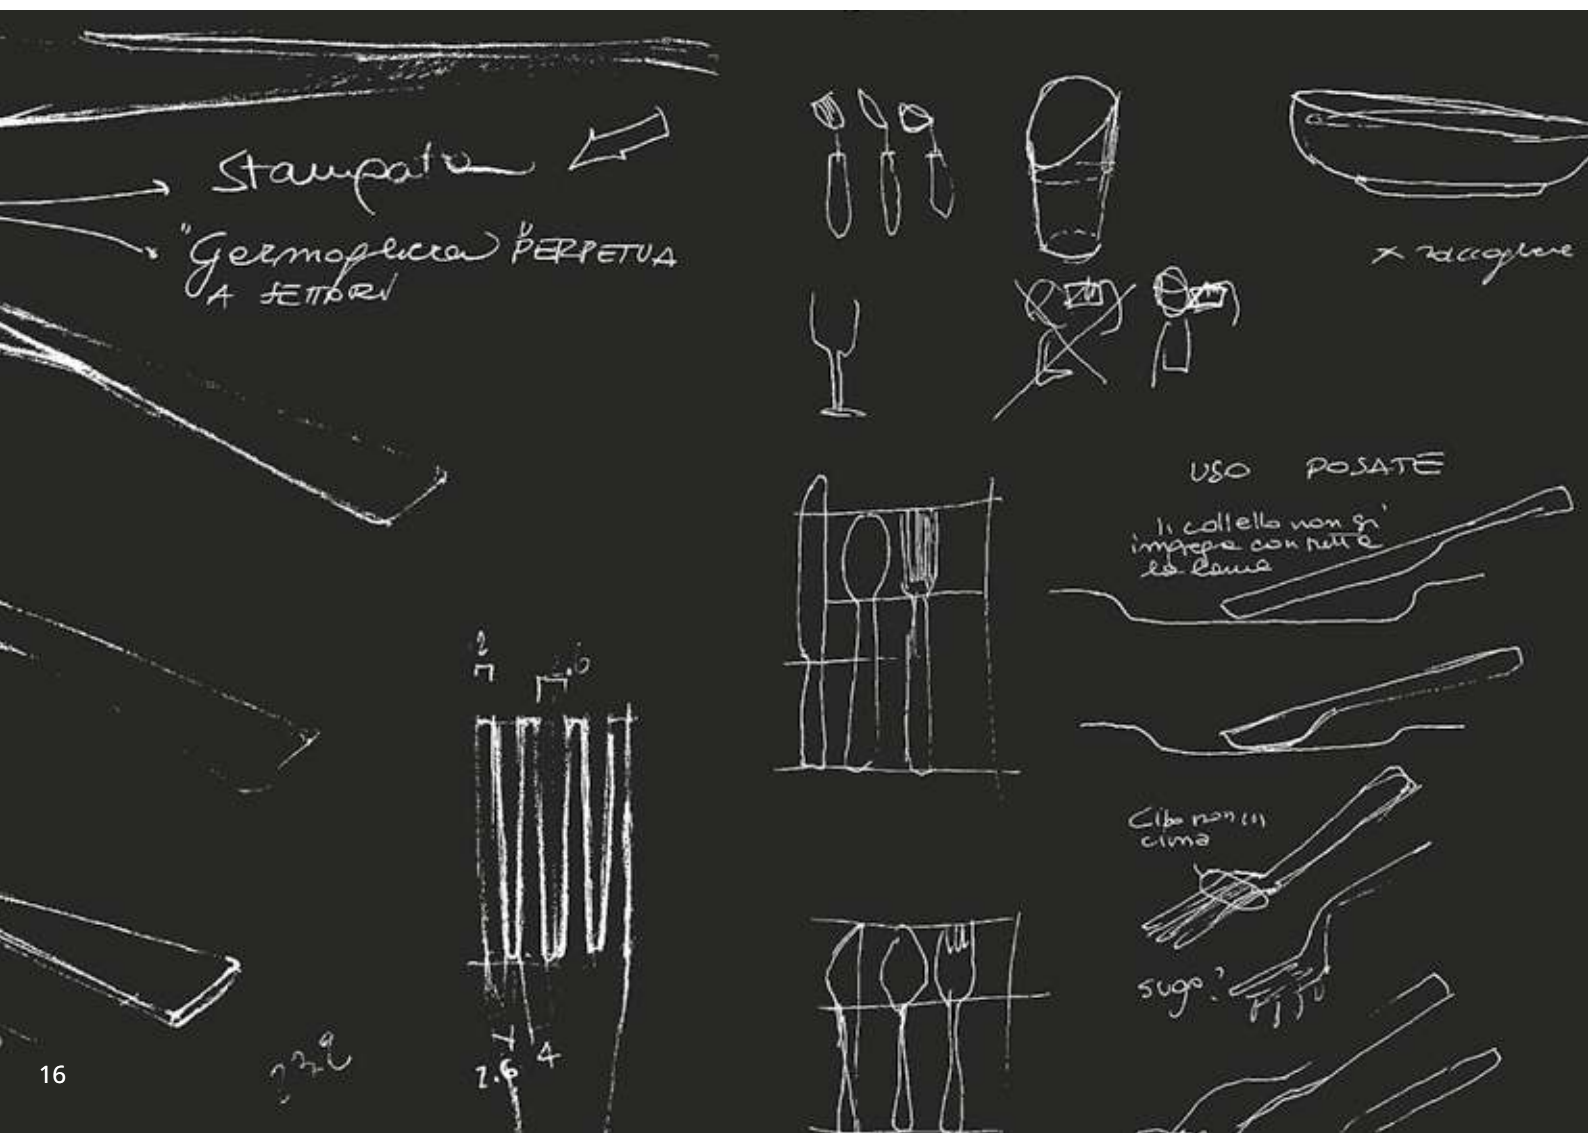 Stampata
"Germogliera" PERPETUA
A SETTORI
x raccogliere
USO POSATE
Il coltello non si
impiega con tutta
la lama
2
2.6 4
Cibo non in
cima
sugo?
16